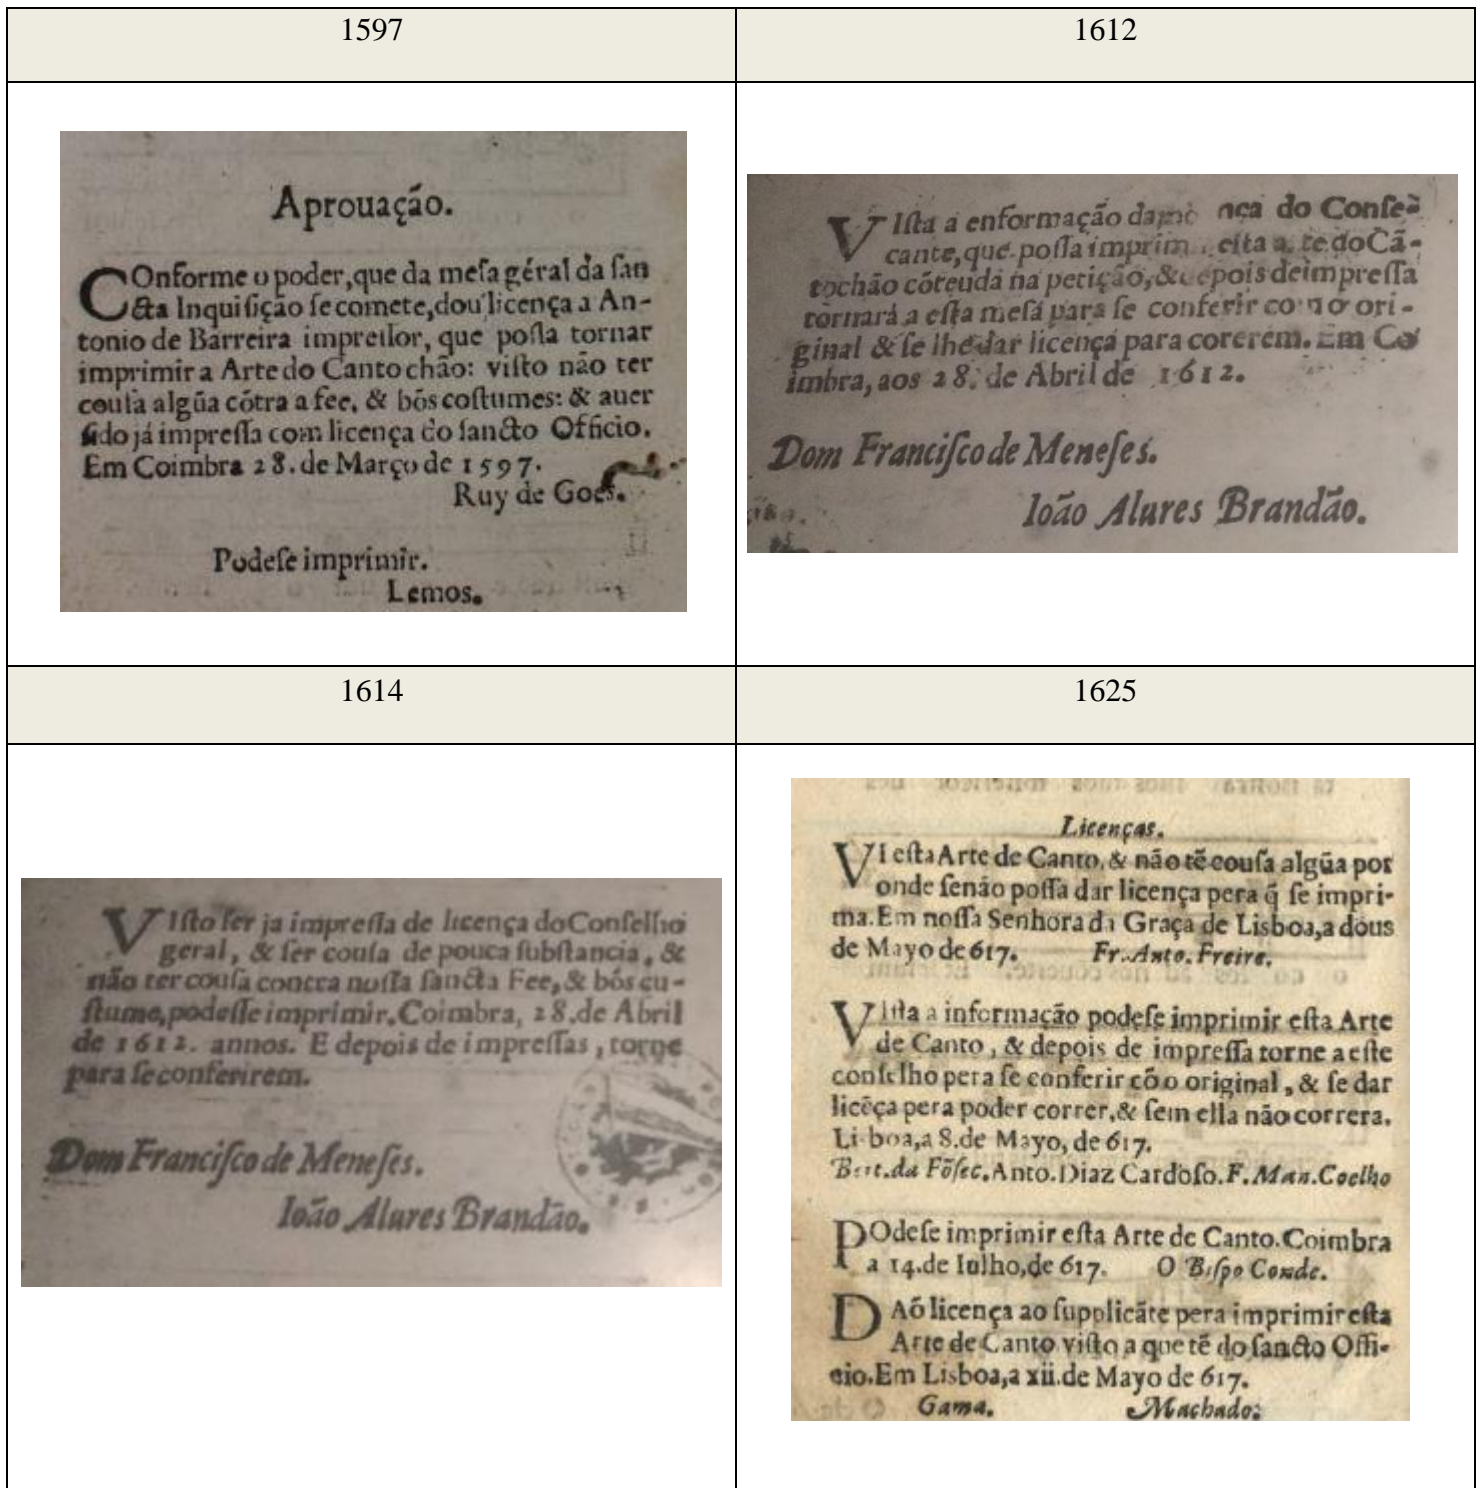 1597
Aprouação.
COnforme o poder, que da meſa géral da ſan
cta Inquiſição ſe comete, dou licença a An-
tonio de Barreira impreſſor, que poſſa tornar
imprimir a Arte do Canto chão: viſto não ter
couſa algũa cõtra a fee, & bõs coſtumes: & auer
ſido já impreſſa com licença do ſancto Officio.
Em Coimbra 28. de Março de 1597.
Ruy de Goes.
Podeſe imprimir.
Lemos.
1612
VIſta a enformação do Conſe-
cante, que poſſa eſta do Cã-
tochão cõteuda na petição, & depois de impreſſa
tornará a eſta meſa para ſe conferir ori-
ginal & ſe lhe dar licença para corerem. Em Co
imbra, aos 28. de Abril de 1612.
Dom Franciſco de Meneſes.
Ioão Alures Brandão.
1614
VIſto ſer ja impreſſa de licença do Conſelho
geral, & ſer couſa de pouca ſubſtancia, &
não ter couſa contra noſſa ſancta Fee, & bõs cu-
ſtume, podeſſe imprimir. Coimbra, 28. de Abril
de 1612. annos. E depois de impreſſas, torne
para ſe conferirem.
Dom Franciſco de Meneſes.
Ioão Alures Brandão.
1625
Licenças.
VI eſta Arte de Canto, & não tẽ couſa algũa por
onde ſenão poſſa dar licença pera q̃ ſe impri-
ma. Em noſſa Senhora da Graça de Lisboa, a dous
de Mayo de 617. Fr. Anto. Freire.
VIſta a informação podeſe imprimir eſta Arte
de Canto, & depois de impreſſa torne a eſte
conſelho pera ſe conferir cõ o original, & ſe dar
licẽça pera poder correr, & ſem ella não correra.
Lisboa, a 8. de Mayo, de 617.
Bert. da Fõſec. Anto. Diaz Cardoſo. F. Man. Coelho
POdeſe imprimir eſta Arte de Canto. Coimbra
a 14. de Iulho, de 617. O Biſpo Conde.
DAõ licença ao ſupplicãte pera imprimir eſta
Arte de Canto viſto a que tẽ do ſancto Offi-
cio. Em Lisboa, a xii. de Mayo de 617.
Gama. Machado.